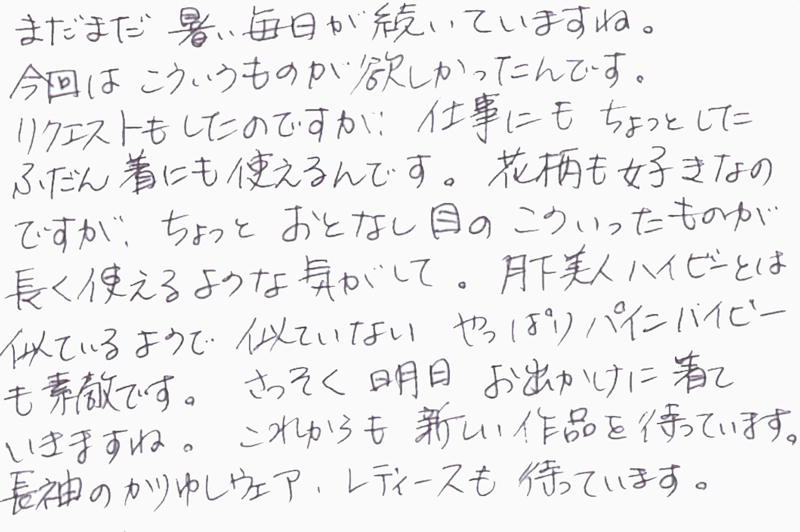 まだまだ暑い毎日が続いていますね。
今回はこういうものが欲しかったんです。
リクエストもしたのですが、仕事にもちょっとした
ふだん着にも使えるんです。花柄も好きなの
ですが、ちょっとおとなし目のこういったものが
長く使えるような気がして。月下美人ハイビーとは
似ているようで似ていないやっぱりパインバイビー
も素敵です。さっそく明日お出かけに着て
いきますね。これからも新しい作品を待っています。
長袖のかりゆしウェア、レディースも待っています。